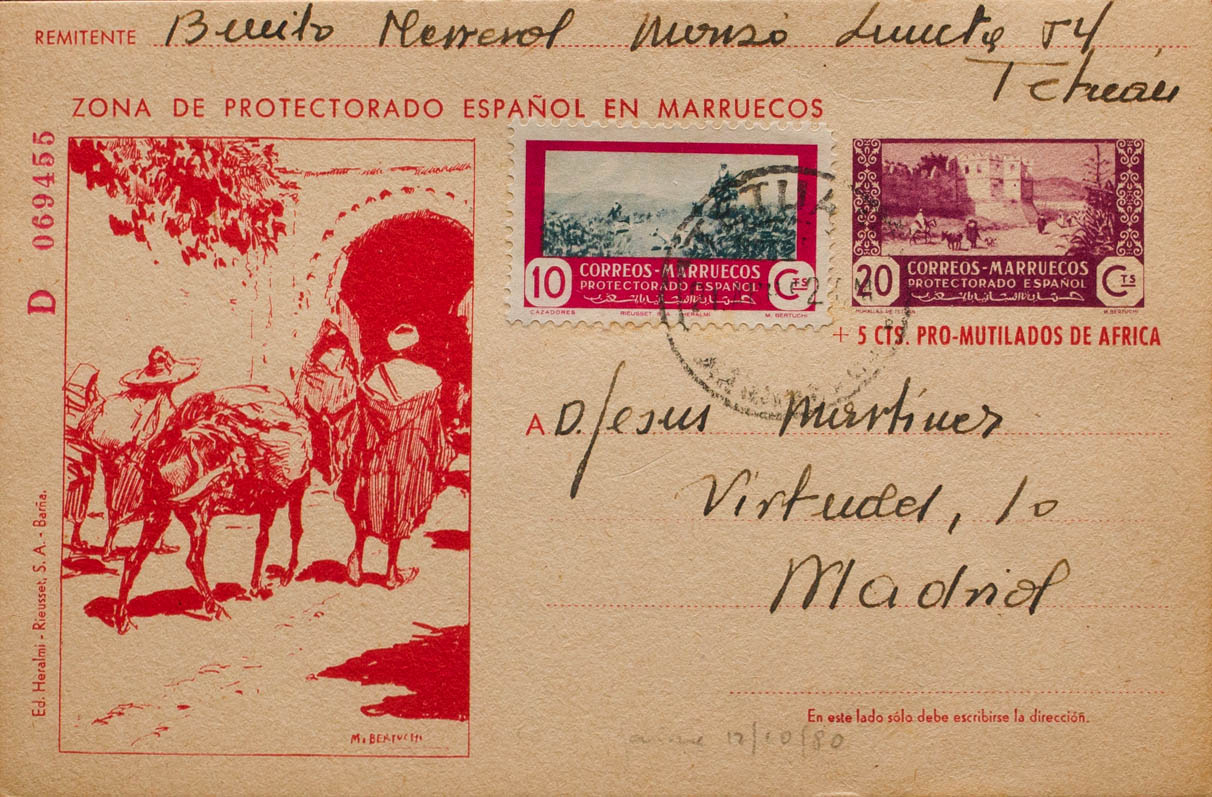 REMITENTE Benito Merrerol Monzó Luneta 54
Tetuán
ZONA DE PROTECTORADO ESPAÑOL EN MARRUECOS
D 069455
10 CORREOS-MARRUECOS CTS
PROTECTORADO ESPAÑOL
CAZADORES RIEUSSET HERALMI M. BERTUCHI
20 CORREOS-MARRUECOS CTS
PROTECTORADO ESPAÑOL
M. BERTUCHI
+ 5 CTS. PRO-MUTILADOS DE AFRICA
A D. Jesus Martínez
Virtudes, 10
Madrid
En este lado sólo debe escribirse la dirección.
12/10/80
M. BERTUCHI
Ed. Heralmi - Rieusset, S. A. - Barña.